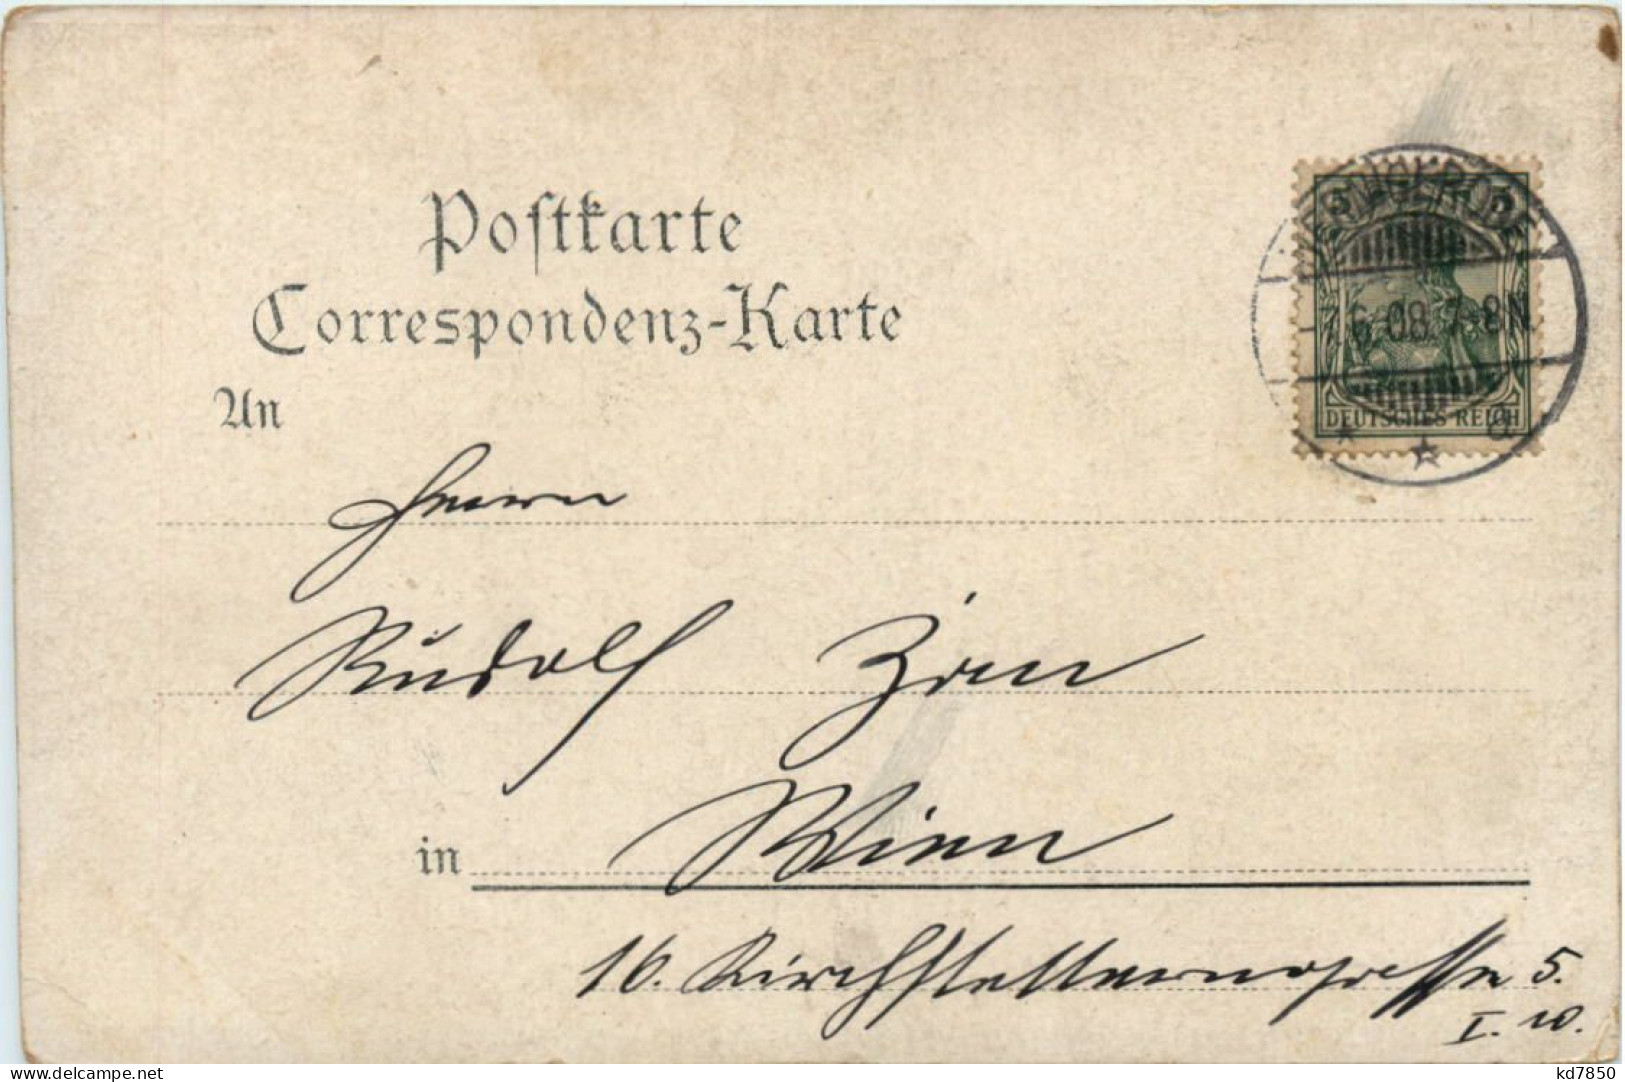 Postkarte
Correspondenz-Karte
An
5 5
WERNIGERODE
7.6.08.7-8N
DEUTSCHES REICH
* * a
Herrn
Rudolf
in Wien
16. Kirchstetterngasse 5.
I. 10.
www.delcampe.net
kd7850